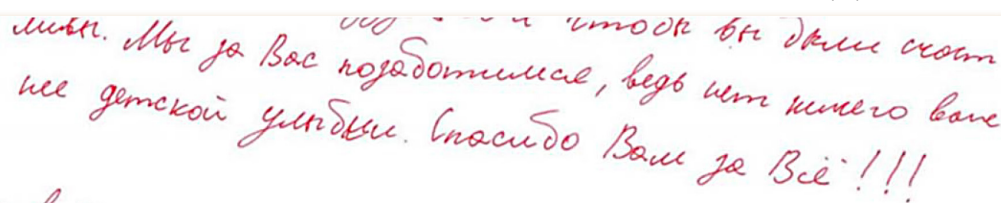 чтобы вы были счаст
ливы. Мы за Вас позаботимся, ведь нет ничего важ
нее детской улыбки. Спасибо Вам за Всё!!!